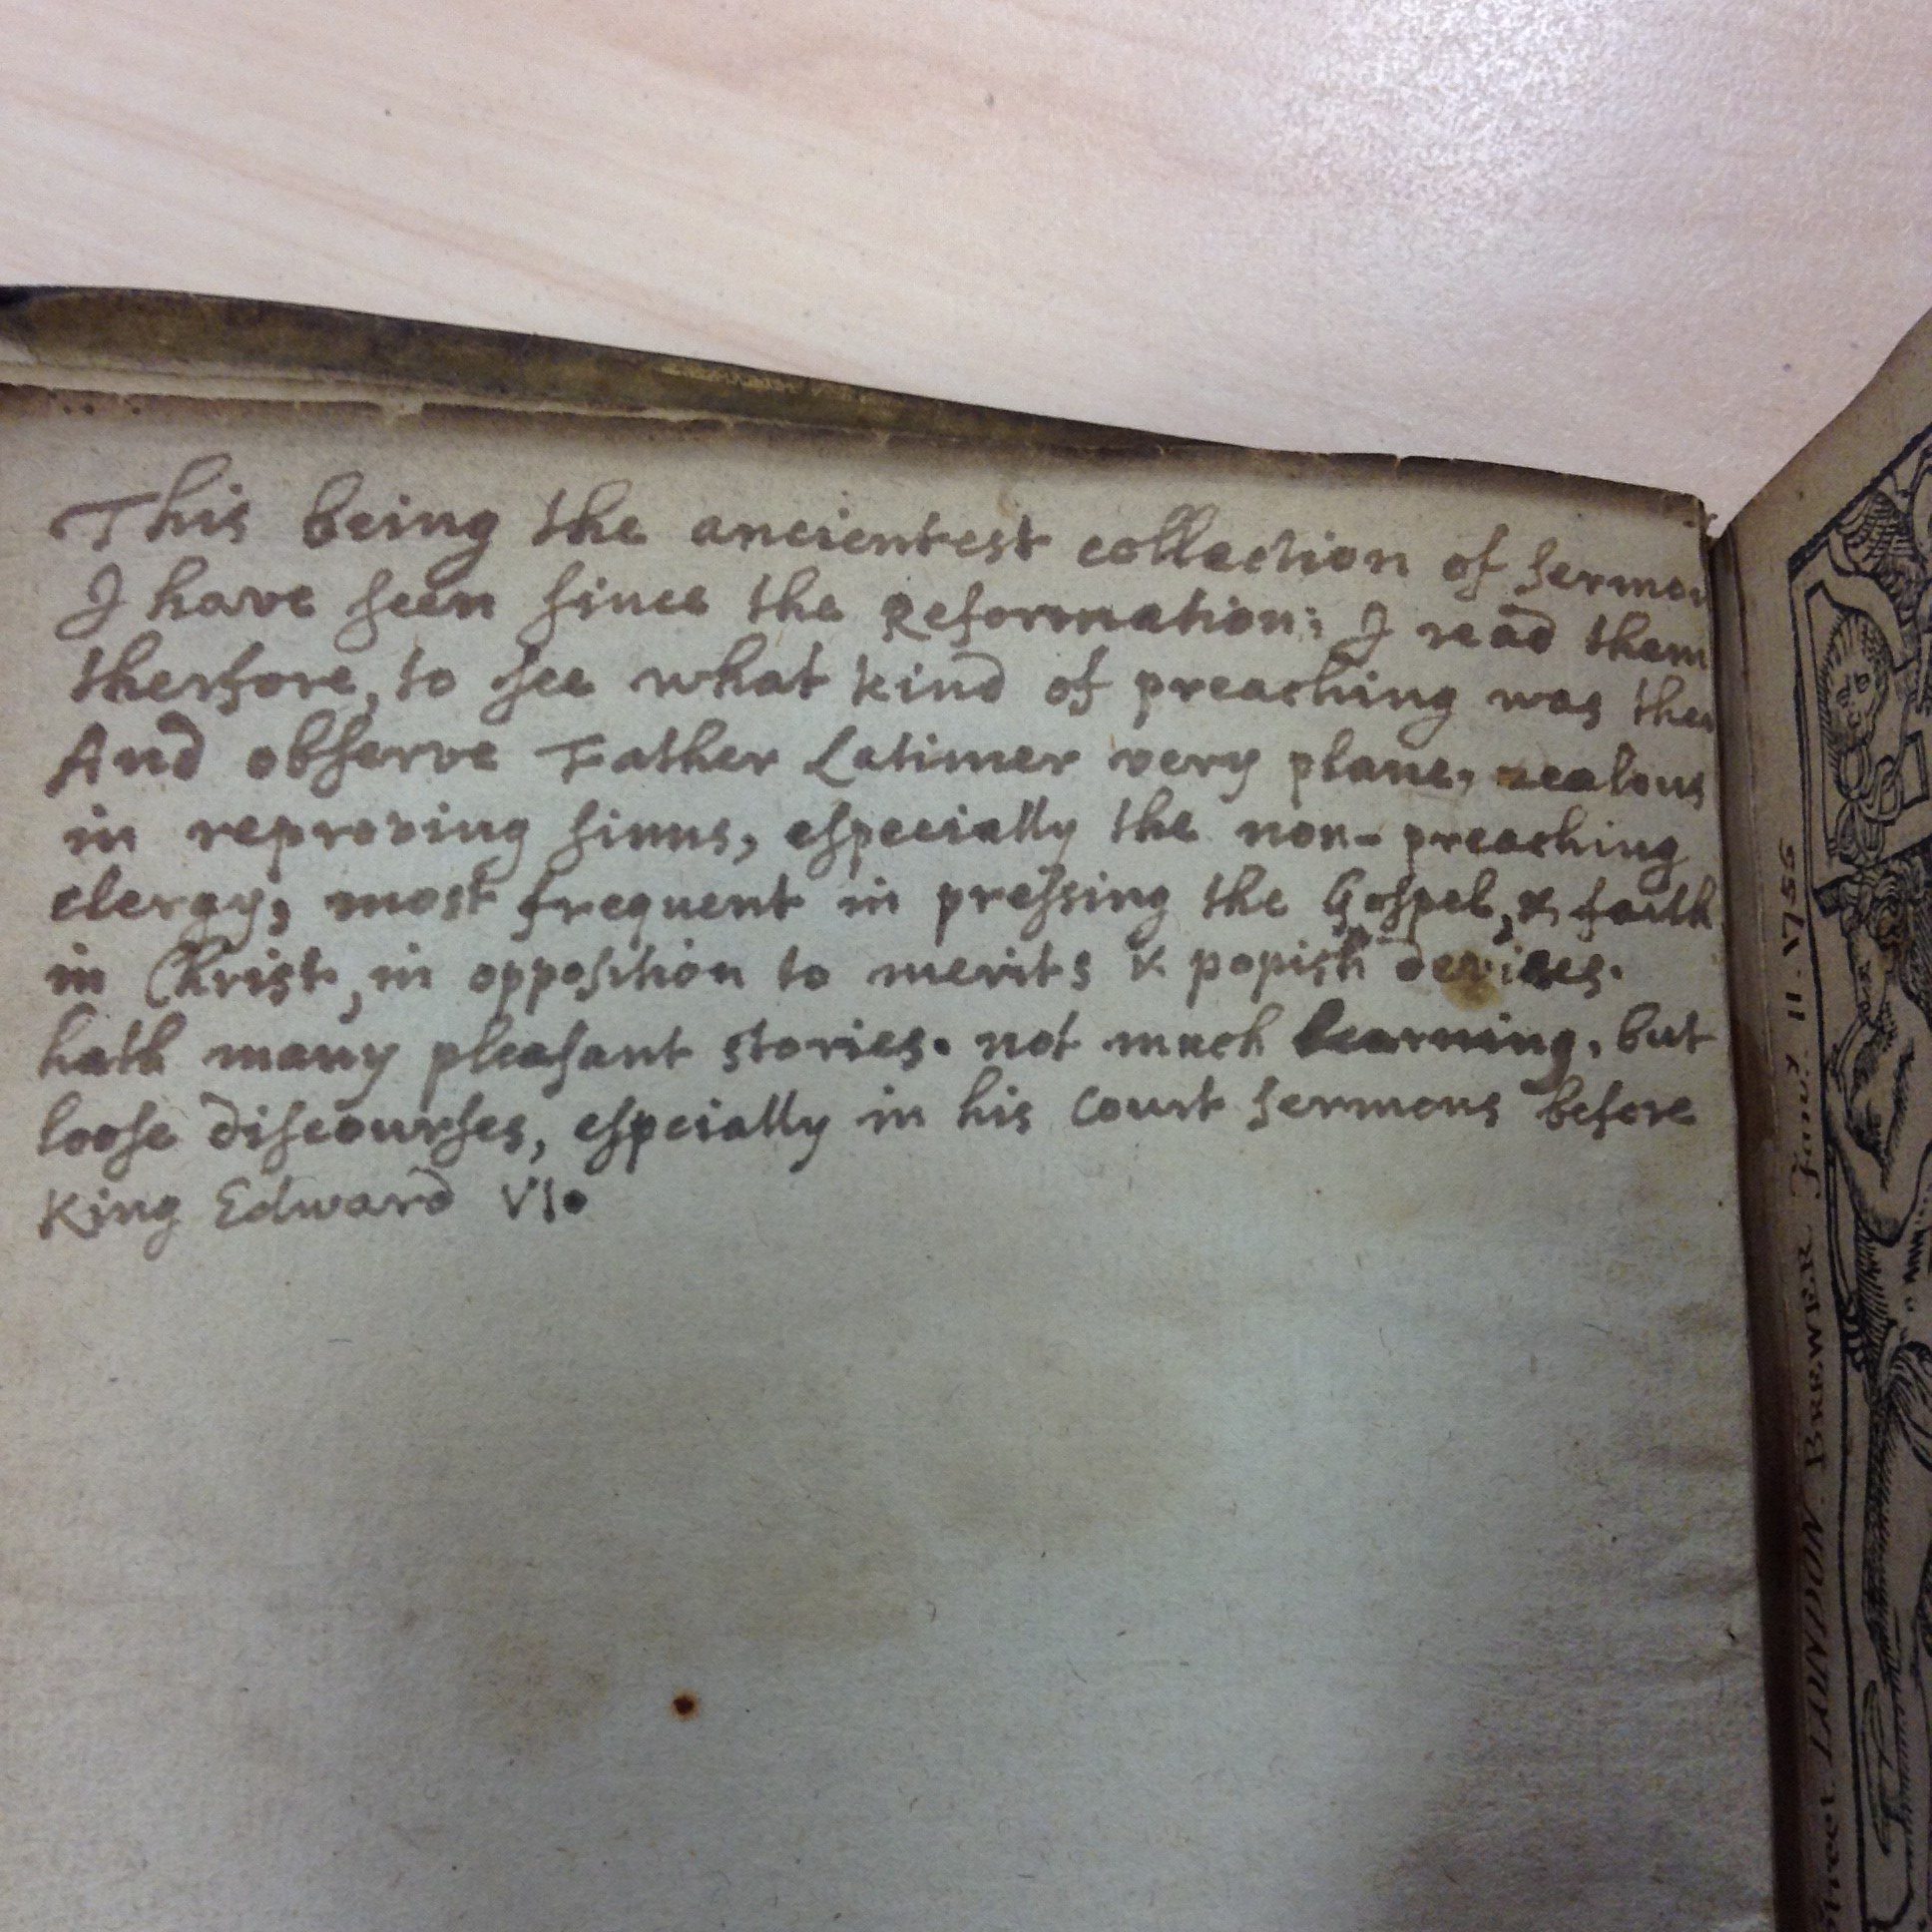 This being the ancientest collection of sermon
I have seen since the Reformation: I read them
therfore, to see what kind of preaching was then
And observe Father Latimer very plane, zealous
in reproving sinns, especially the non-preaching
clergy, most frequent in pressing the Gospel, & faith
in Christ, in opposition to merits & popish devises.
hath many pleasant stories. not much learning, but
loose discourses, espcially in his Court sermons before
King Edward VI.
street. LONDON. BREWER Jany. 11. 1755